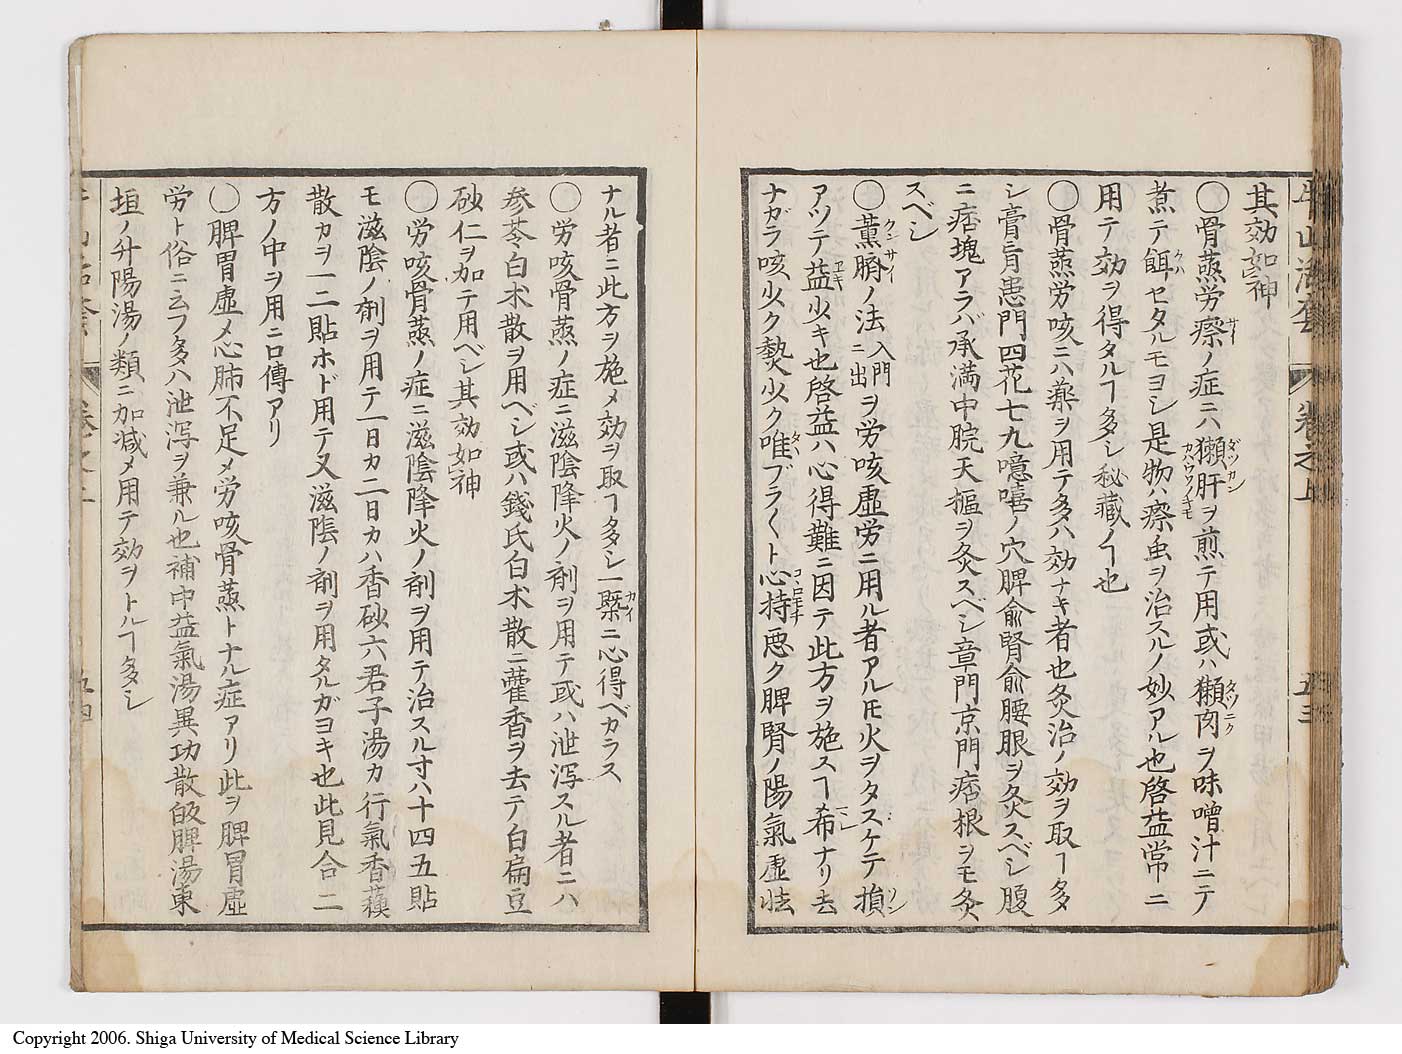 其効如神
○骨蒸労瘵ノ症ニハ獺肝ヲ煎テ用或ハ獺肉ヲ味噌汁ニテ
煮テ餌セタルモヨシ是物ハ瘵虫ヲ治スルノ妙アル也啓益常ニ
用テ効ヲ得タルヿ多シ秘藏ノヿ也
○骨蒸労咳ニハ薬ヲ用テ多ハ効ナキ者也灸治ノ効ヲ取ヿ多
シ膏肓患門四花七九噫嘻ノ穴脾俞腎俞腰眼ヲ灸スベシ腹
ニ痞塊アラバ承満中脘天樞ヲ灸スベシ章門京門痞根ヲモ灸
スベシ
○薫臍ノ法入門ニ出ヲ労咳虚労ニ用ル者アルヒ火ヲタスケテ損
アツテ益少キ也啓益ハ心得難ニ因テ此方ヲ施スヿ希ナリ去
ナガラ咳少ク熱少ク唯ブラ〱ト心持悪ク脾腎ノ陽氣虚怯
ナル者ニ此方ヲ施メ効ヲ取ヿ多シ一槩ニ心得ベカラス
○労咳骨蒸ノ症ニ滋陰降火ノ剤ヲ用テ或ハ泄瀉スル者ニハ
参苓白朮散ヲ用ベシ或ハ錢氏白朮散ニ藿香ヲ去テ白扁豆
砂仁ヲ加テ用ベシ其効如神
○労咳骨蒸ノ症ニ滋陰降火ノ剤ヲ用テ治スル寸ハ十四五貼
モ滋陰ノ剤ヲ用テ一日カ二日カハ香砂六君子湯カ行氣香蘓
散カヲ一二貼ホド用テ又滋陰ノ剤ヲ用タルガヨキ也此見合ニ
方ノ中ヲ用ニ口傳アリ
○脾胃虚メ心肺不足メ労咳骨蒸トナル症アリ此ヲ脾胃虚
労ト俗ニ云フ多ハ泄瀉ヲ兼ル也補中益氣湯異功散皈脾湯東
垣ノ升陽湯ノ類ニ加减メ用テ効ヲトルヿ多シ
牛山活套 卷之上 五三
卷之上 五四
Copyright 2006. Shiga University of Medical Science Library